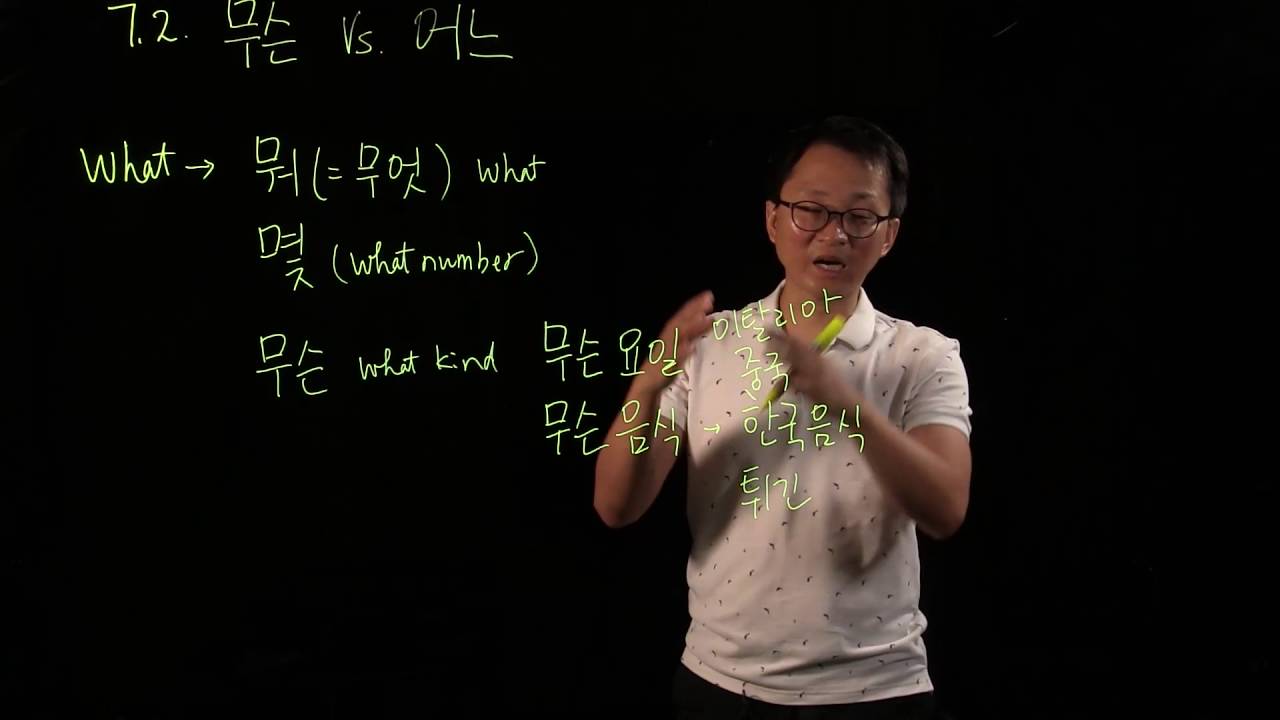 7.2. 무슨 vs. 어느
What → 뭐 (= 무엇) what
몇 (what number)
무슨 what kind 무슨 요일
이탈리아
중국
무슨 음식 → 한국음식
튀긴